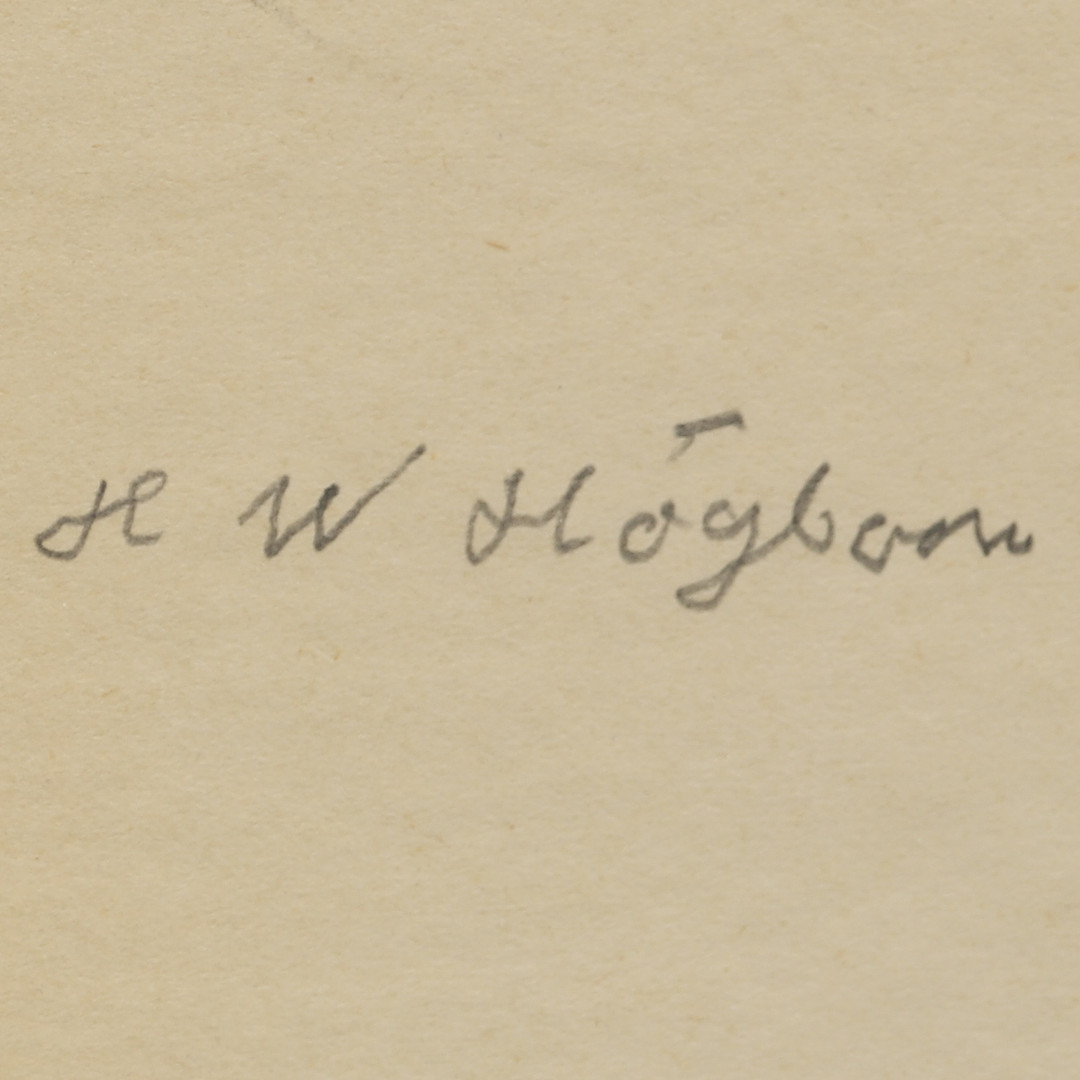 H W Högbom